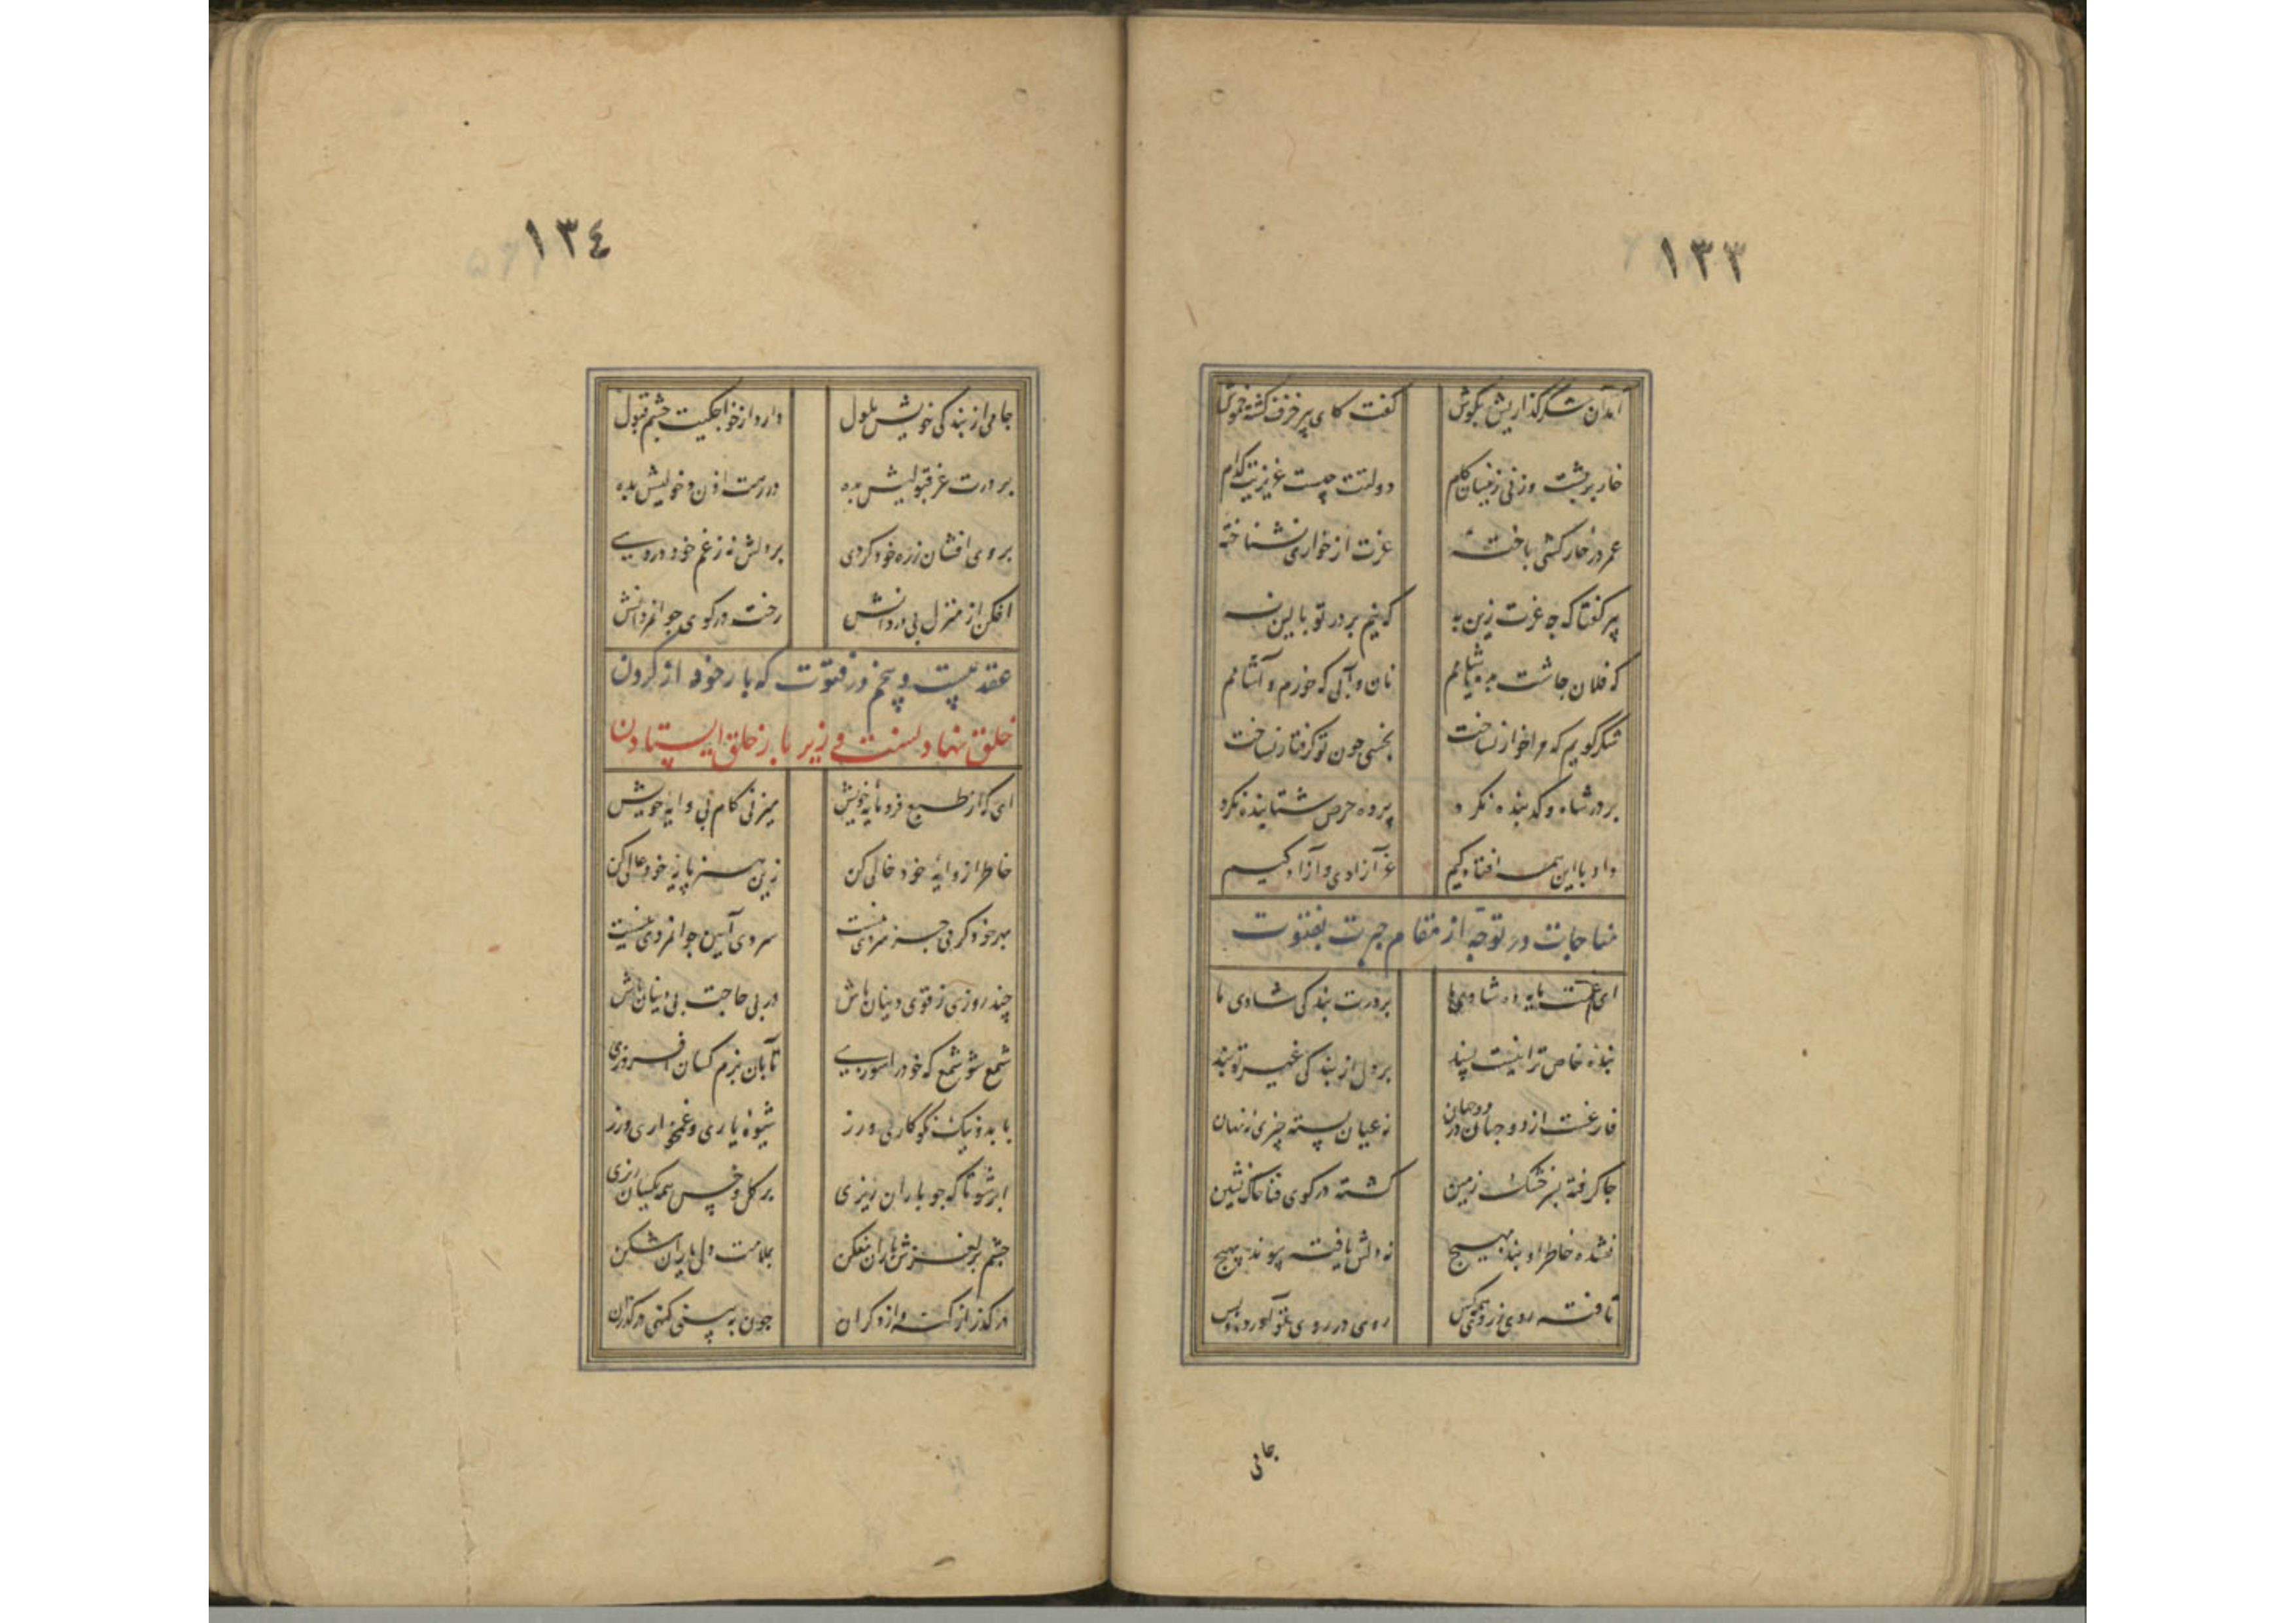 ١٣٣
آمد آن شکرگذاریش بگوش گفت کای پیر خرف گشته خموش
خار بر پشت و زنی زینسان گام دولتت چیست عزیزیت کدام
عمر در خارکشی باخته عزت از خواری نشناخته
پیر گفتا که چه عزت زین به که نیم بر در تو بالین نه
که فلان چاشت بده یا شامم نان و آبی که خورم و آشامم
شکر گویم که مرا خوار نساخت بخسی چون تو گرفتار نساخت
بر در شاه و گدا بنده نکرد پرده حرص شتابنده نکرد
داد با این همه افتادگیم عز آزادی و آزادگیم
مناجات در توجه از مقام حریت بفتوت
ای غمت مایه ده شادیها بر درت بندگی آزادی ما
بنده خاص ترا نیست پسند بر دل از بندگی غیر تو بند
فارغست از دو جهان در دو جهان نه عیان بسته چیزی نه نهان
جا گرفته بسر خشک زمین گشته در کوی فنا خاک نشین
نشده خاطر او بند بهیچ نه دلش یافته پیوند بهیچ
تافته روی ز روی همه کس روی در روی تو آورده و بس
جامی
١٣٤
جامی از بندگی خویش ملول دارد از خواجگیت چشم قبول
بر درت عز قبولیش بده در رهت اذن دخولیش بده
بروی افشان ز ره خود گردی بر دلش نه ز غم خود دردی
افکن از منزل بی دردانش رخت در کوی جوانمردانش
عقد بیست و پنجم در فتوت که بار خود از گردن
خلق نهادنست و زیر بار خلق ایستادن
ای که از طبع فرومایه خویش میزنی گام پی وایه خویش
خاطر از وایه خود خالی کن زین هنر پایه خود عالی کن
بهر خود گرمی جز سردی نیست سردی آیین جوانمردی نیست
چند روزی ز قوی دینان باش در پی حاجت بی دینان باش
شمع شو شمع که خود را سوزی تا بآن بزم کسان افروزی
با بد و نیک نکوکاری ورز شیوه یاری و غمخواری ورز
ابر شو تا که چو باران ریزی بر گل و خس همه یکسان ریزی
چشم بر لغزش یاران مفکن بملامت دل یاران مشکن
در گذر از گنه و از دگران چون ببینی گنهی در گذران